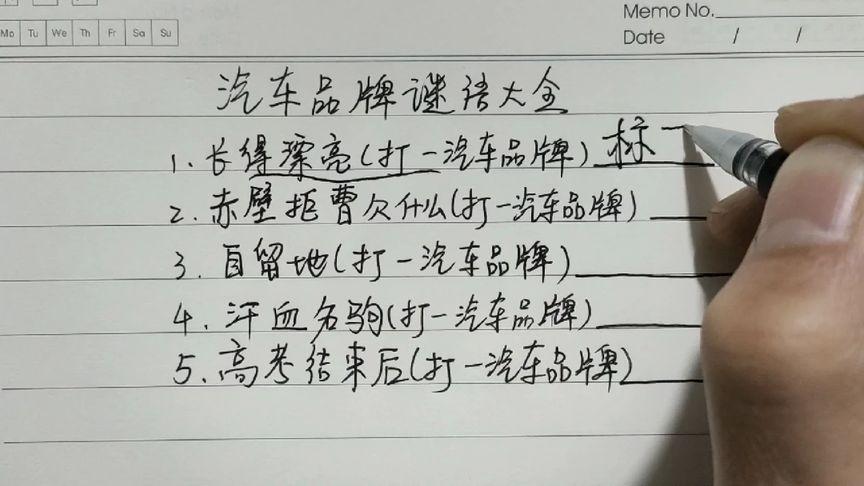 Memo No.
Mo Tu We Th Fr Sa Su
Date / /
汽车品牌谜语大全
1. 长得漂亮(打一汽车品牌) 标
2. 赤壁拒曹欠什么(打一汽车品牌)
3. 自留地(打一汽车品牌)
4. 汗血名驹(打一汽车品牌)
5. 高考结束后(打一汽车品牌)